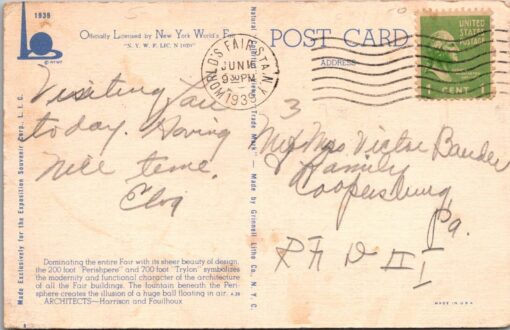 1939
© NYWF
Officially Licensed by New York World's Fair
"N. Y. W. F. LIC. N 1939"
POST CARD
ADDRESS
WORLD'S FAIR STA. N.Y.
JUN 16
9 30 PM
1939
UNITED
STATES
POSTAGE
1 CENT 1
Made Exclusively for the Exposition Souvenir Corp. L. I. C.
Made by Grinnell Litho Co. N. Y. C.
Visiting Fair
today. Having
nice time.
3
Mr & Mrs Victor Bauder
& Family
Coopersburg
Pa.
R F D III
Dominating the entire Fair with its sheer beauty of design,
the 200 foot "Perisphere" and 700 foot "Trylon" symbolizes
the modernity and functional character of the architecture
of all the Fair buildings. The fountain beneath the Peri-
sphere creates the illusion of a huge ball floating in air.
ARCHITECTS—Harrison and Fouilhoux
MADE IN U.S.A.